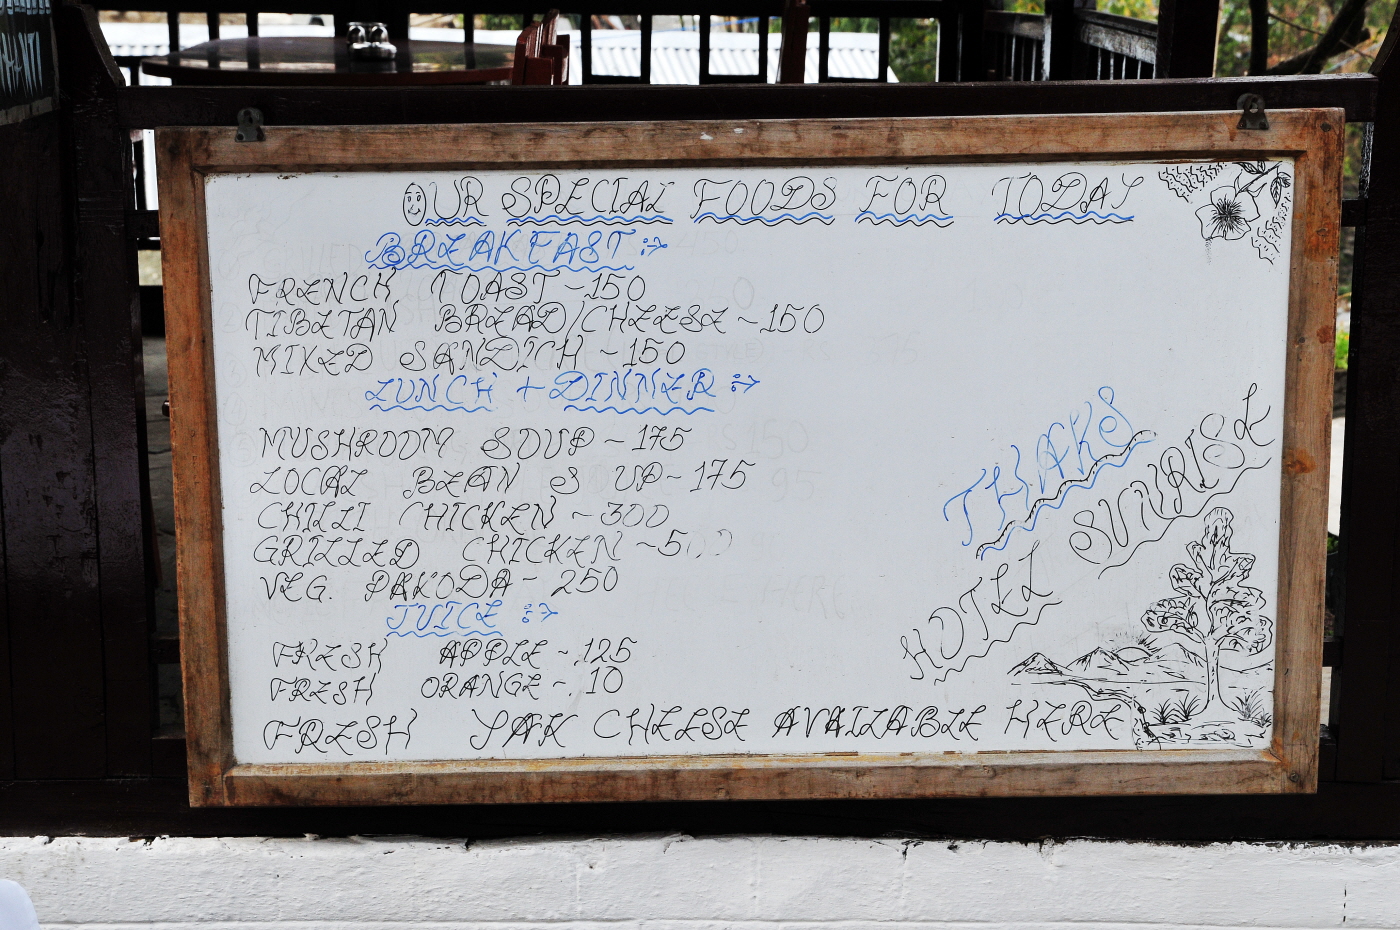 OUR SPECIAL FOODS FOR TODAY
BREAKFAST :->
FRENCH TOAST ~ 150
TIBETAN BREAD/CHEESE ~ 150
MIXED SANDICH ~ 150
LUNCH + DINNER :->
MUSHROOM SOUP ~ 175
LOCAL BEAN S UP ~ 175
CHILLI CHICKEN ~ 300
GRILLED CHICKEN ~
VEG. PAKODA ~ 250
JUICE :->
FRESH APPLE ~ 125
FRESH ORANGE ~ 10
FRESH YAK CHEESE AVAILABLE HERE
THAKS
HOTEL SUNRISE